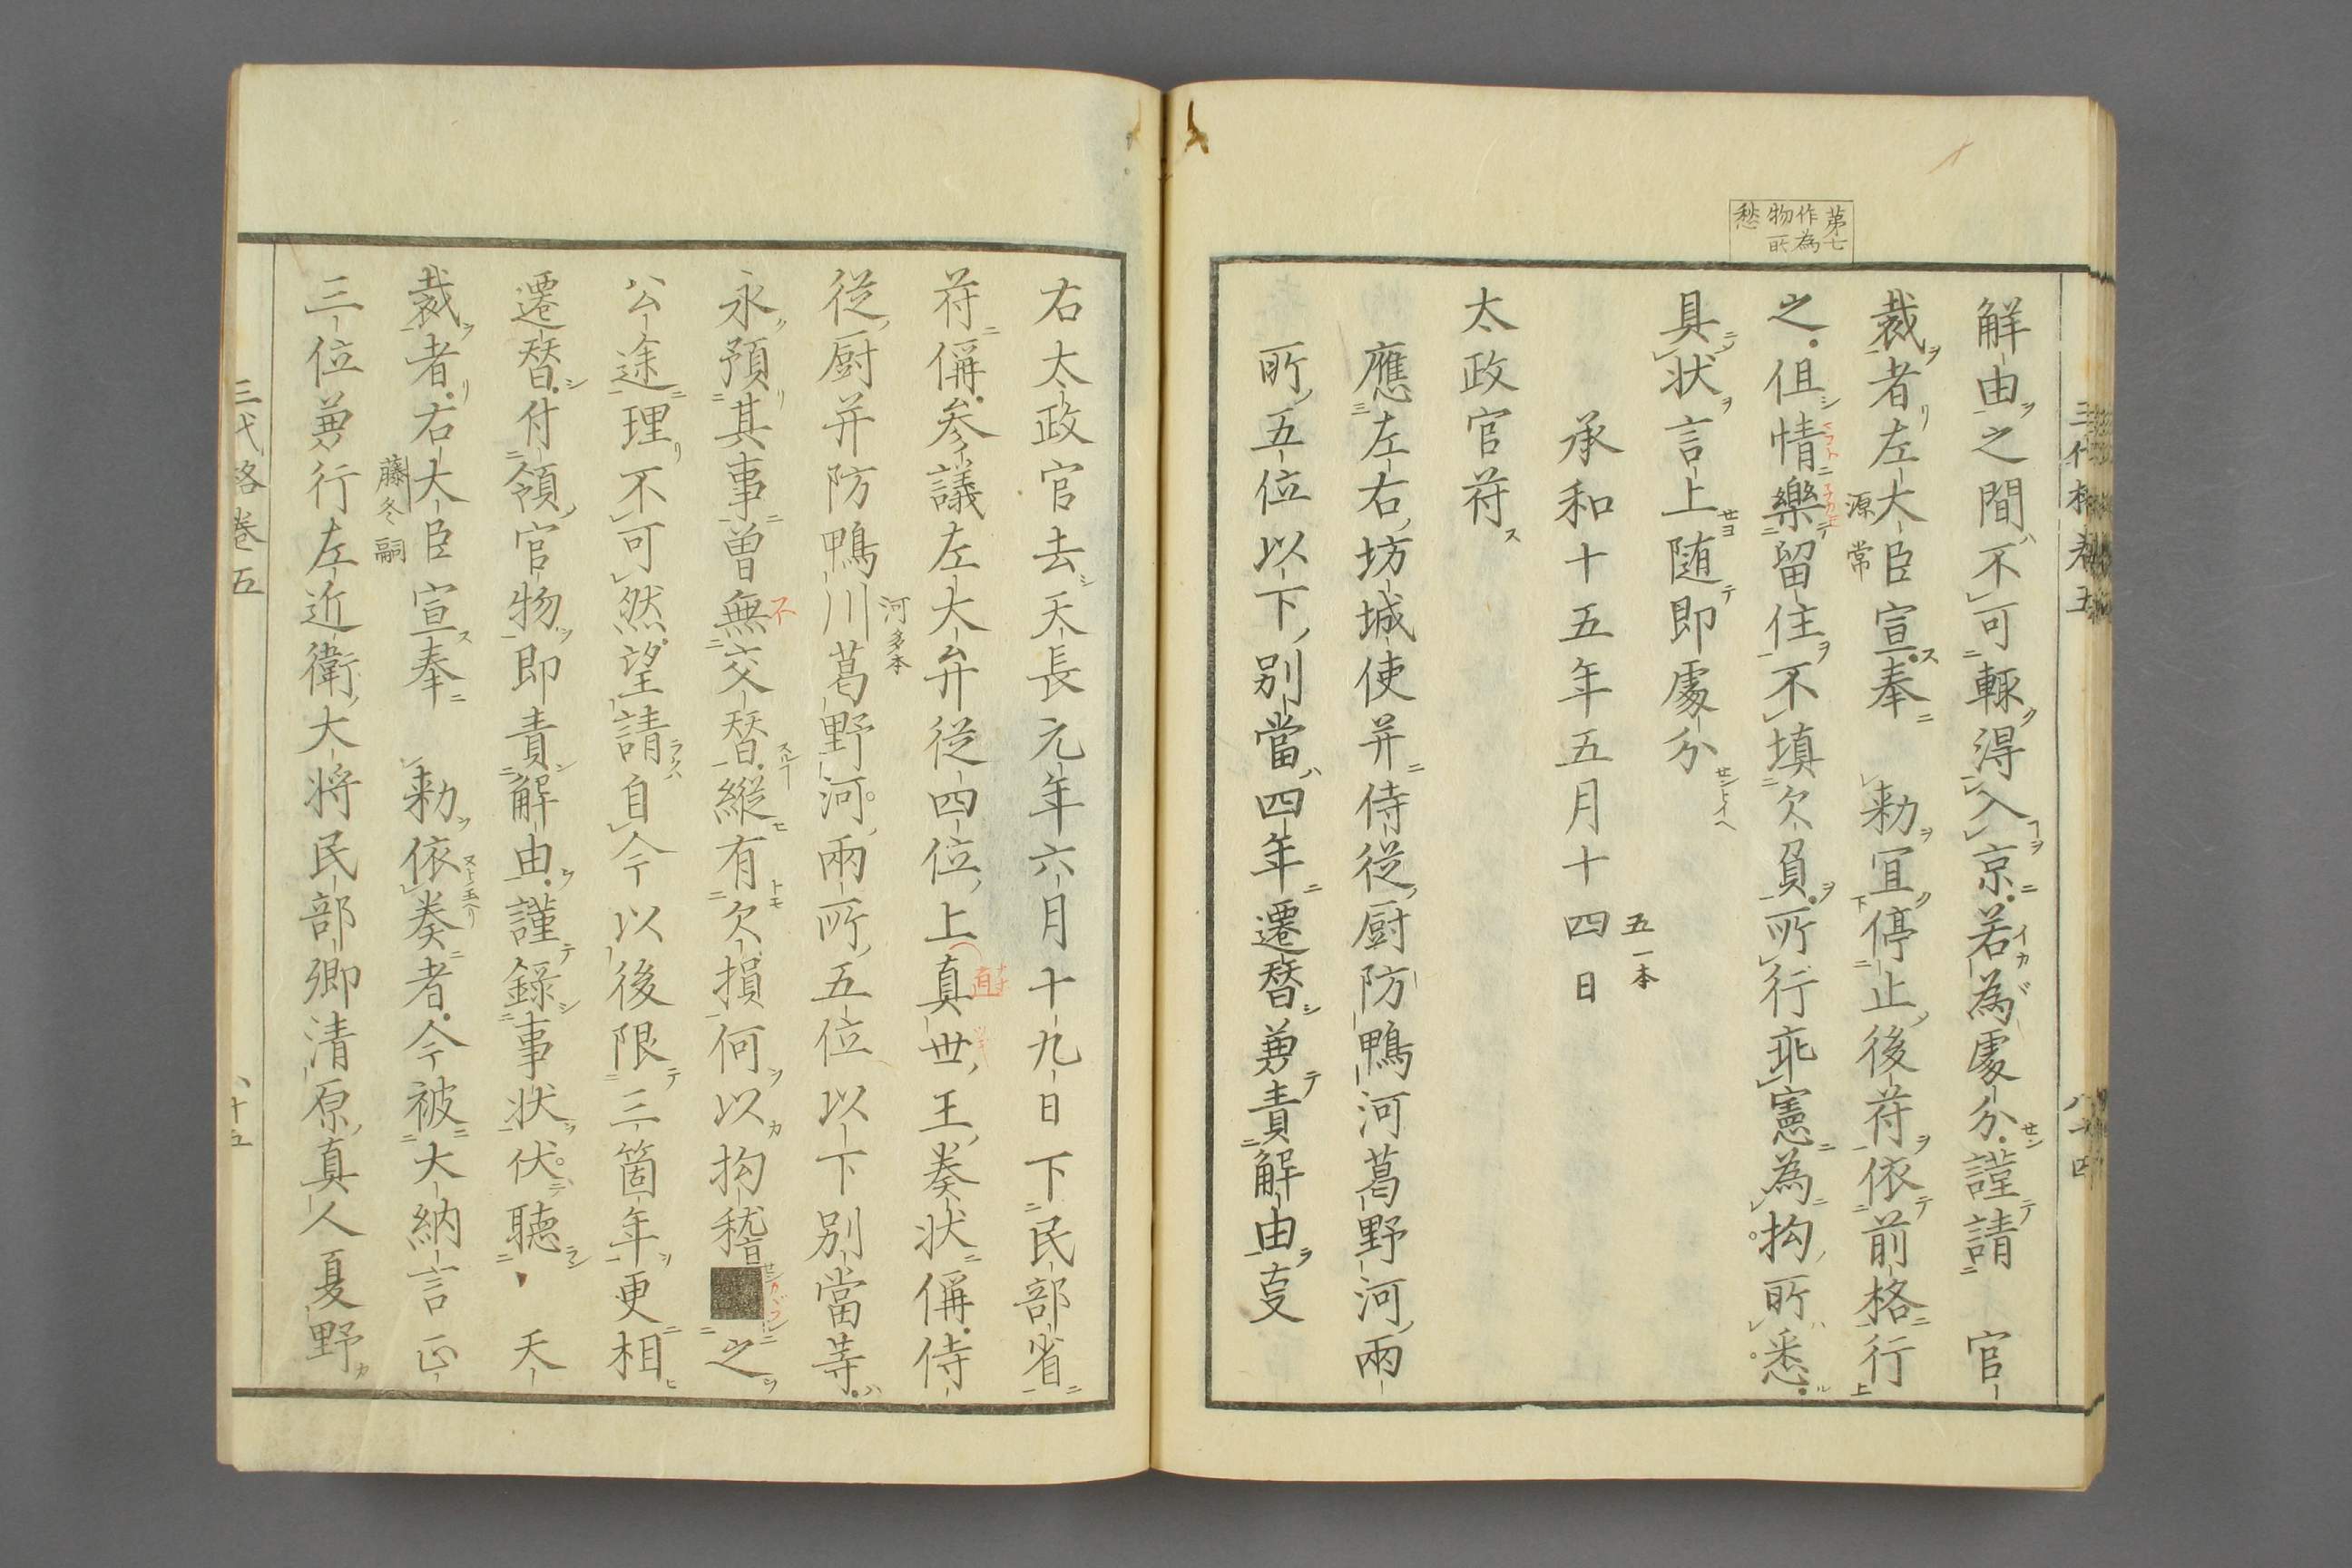 三代格卷五
八十四
第七
作為
物所
愁
解由之間不可輙得入京若為處分謹請官
裁者左大臣宣奉勅冝停止後符依前格行
源常
之但情樂留住不填欠負所行乖憲為拘所悉
具状言上随即處分
承和十五年五月十四日
五一本
太政官符
應左右坊城使并侍從厨防鴨河葛野河兩
所五位以下別當四年遷替兼責解由㕝
右太政官去天長元年六月十九日下民部省
符偁参議左大弁從四位上真世王奏状偁侍
直
從厨并防鴨川葛野河兩所五位以下別當等
河多本
永預其事曾無交替縦有欠損何以拘稽■之
不
公途理不可然望請自今以後限三箇年更相
遷替付領官物即責解由謹録事状伏聴天
裁者右大臣宣奉勅依奏者今被大納言正
藤冬嗣
三位兼行左近衛大将民部卿清原真人夏野
三代格卷五
八十五